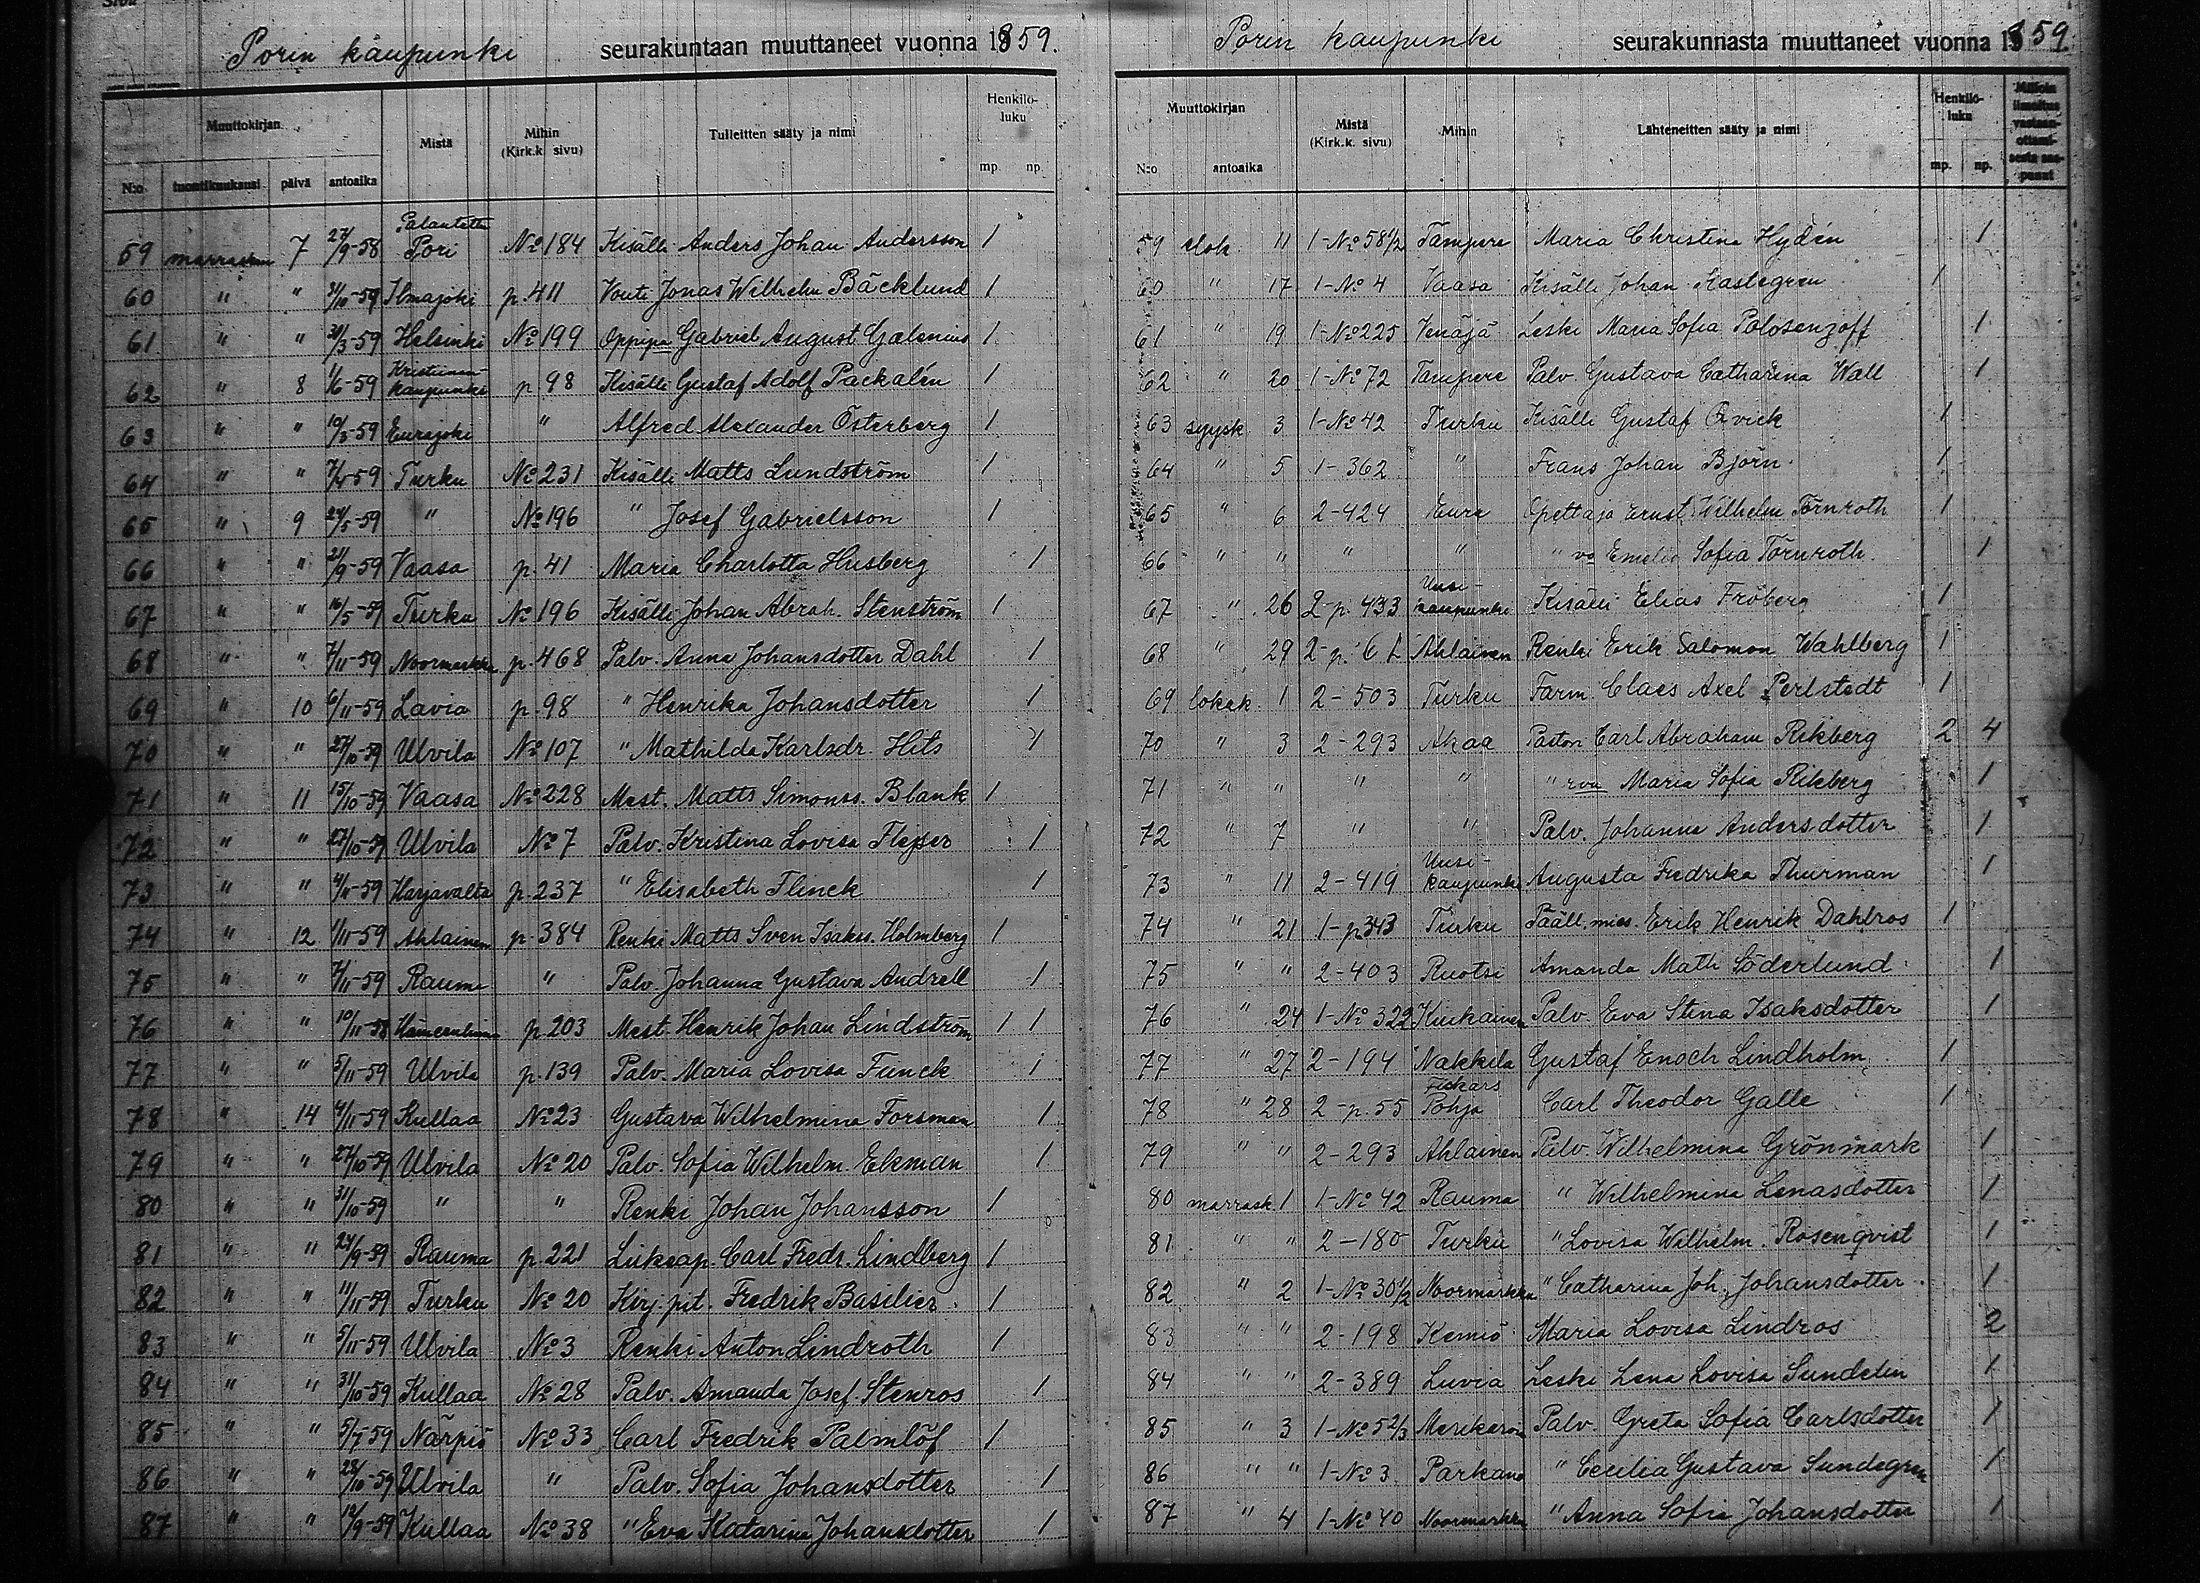 Porin kaupunki seurakuntaan muuttaneet vuonna 1859.
Muuttokirjan Mistä Mihin (Kirk.k. sivu) Tulleitten sääty ja nimi Henkilöluku
N:o tuontikuukausi päivä antoaika mp. np.
59 marraskuu 7 27/9-58 Palautettu Pori No 184 Kisälli Anders Johan Andersson 1
60 " " 31/10-59 Ilmajoki p. 411 Vouti Jonas Wilhelm Bäcklund 1
61 " " 30/3-59 Helsinki No 199 Oppipa Gabriel August Galenius 1
62 " 8 1/6-59 Kristiinankaupunki p. 98 Kisälli Gustaf Adolf Packalén 1
63 " " 10/3-59 Eurajoki " Alfred Alexander Österberg 1
64 " " 7/4-59 Turku No 231 Kisälli Matts Lundström 1
65 " 9 24/5-59 " No 196 " Josef Gabrielsson 1
66 " " 21/9-59 Vaasa p. 41 Maria Charlotta Husberg 1
67 " " 16/5-59 Turku No 196 Kisälli Johan Abrah. Stenström 1
68 " " 7/11-59 Noormarkku p. 468 Palv. Anna Johansdotter Dahl 1
69 " 10 6/11-59 Lavia p. 98 " Henrika Johansdotter 1
70 " " 27/10-59 Ulvila No 107 " Mathilda Karlsdr. Hits 1
71 " 11 15/10-59 Vaasa No 228 Mest. Matts Simonss. Blank 1
72 " " 27/10-59 Ulvila No 7 Palv. Kristina Lovisa Flejser 1
73 " " 4/11-59 Harjavalta p. 237 " Elisabeth Flinck 1
74 " 12 1/11-59 Ahlainen p. 384 Renki Matts Sven Isakss. Holmberg 1
75 " " 7/11-59 Rauma " Palv. Johanna Gustava Andrell 1
76 " " 10/11-58 Hämeenlinna p. 203 Mest. Henrik Johan Lindström 1 1
77 " " 5/11-59 Ulvila p. 139 Palv. Maria Lovisa Funck 1
78 " 14 4/11-59 Kullaa No 23 Gustava Wilhelmina Forsman 1
79 " " 27/10-59 Ulvila No 20 Palv. Sofia Wilhelm. Ekman 1
80 " " 31/10-59 " " Renki Johan Johansson 1
81 " " 27/9-59 Rauma p. 221 Luksep. Carl Fredr. Lindberg 1
82 " " 11/11-59 Turku No 20 Kirj.pit. Fredrik Basilier 1
83 " " 5/11-59 Ulvila No 3 Renki Anton Lindroth 1
84 " " 31/10-59 Kullaa No 28 Palv. Amanda Josef. Stenros 1
85 " " 5/7-59 Närpiö No 33 Carl Fredrik Palmlöf 1
86 " " 28/10-59 Ulvila " Palv. Sofia Johansdotter 1
87 " " 12/9-59 Kullaa No 38 " Eva Katarina Johansdotter 1
Porin kaupunki seurakunnasta muuttaneet vuonna 1859
Muuttokirjan Mistä (Kirk.k. sivu) Mihin Lähteneitten sääty ja nimi Henkilöluku Milloin ilmoitus vastaanottamisesta saapunut
N:o antoaika mp. np.
59 elok. 11 1-No 58 1/2 Tampere Maria Christina Hydén 1
60 " 17 1-No 4 Vaasa Kisälli Johan Kastegren 1
61 " 19 1-No 225 Venäjä Leski Maria Sofia Polosenzoff 1
62 " 20 1-No 72 Tampere Palv. Gustava Catharina Wall 1
63 syysk. 3 1-No 42 Turku Kisälli Gustaf Qvick 1
64 " 5 1-362 " Frans Johan Björn 1
65 " 6 2-424 Eura Opettaja Ernst Wilhelm Törnroth 1
66 " " " " " va Emelie Sofia Törnroth 1
67 " 26 2-p. 433 Uusikaupunki Kisälli Elias Fröberg 1
68 " 29 2-p. 61 Ahlainen Renki Erik Salomon Wahlberg 1
69 lokak. 1 2-503 Turku Farm. Claes Axel Perlstedt 1
70 " 3 2-293 Akaa Pastori Carl Abraham Rikberg 2 4
71 " " " " " rva Maria Sofia Rikberg 1
72 " 7 " " Palv. Johanna Andersdotter 1
73 " 11 2-419 Uusikaupunki Augusta Fredrika Thurman 1
74 " 21 1-p 343 Turku Pääll.mies. Erik Henrik Dahlros 1
75 " " 2-403 Ruotsi Amanda Math Söderlund 1
76 " 24 1-No 322 Kiukainen Palv. Eva Stina Isaksdotter 1
77 " 27 2-194 Nakkila Gustaf Enoch Lindholm 1
78 " 28 2-p. 55 Fiskars Pohja Carl Theodor Galle 1
79 " " 2-293 Ahlainen Palv. Wilhelmina Grönmark 1
80 marrask. 1 1-No 42 Rauma " Wilhelmina Lenasdotter 1
81 " " 2-180 Turku " Lovisa Wilhelm. Rosenqvist 1
82 " 2 1-No 30 1/2 Noormarkku " Catharina Joh. Johansdotter 1
83 " " 2-198 Kemiö Maria Lovisa Lindros 2
84 " " 2-389 Luvia Leski Lena Lovisa Sundelin 1
85 " 3 1-No 52/3 Merikarvia Palv. Greta Sofia Carlsdotter 1
86 " " 1-No 3 Parkano " Cecilia Gustava Sundegren 1
87 " 4 1-No 40 Noormarkku " Anna Sofia Johansdotter 1